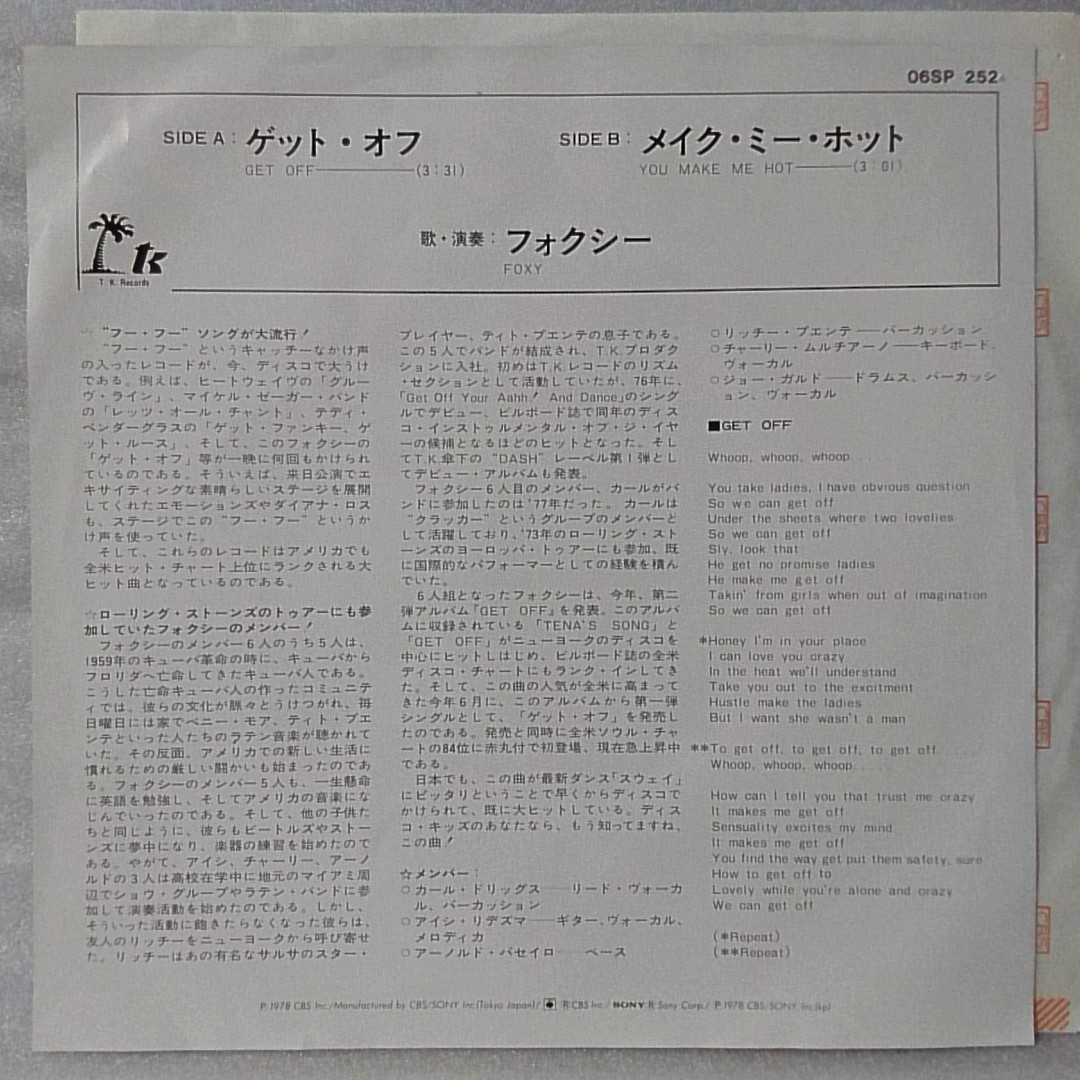 06SP 252
SIDE A : ゲット・オフ
GET OFF (3:31)
SIDE B : メイク・ミー・ホット
YOU MAKE ME HOT (3:01)
歌・演奏 : フォクシー
FOXY
tk
T. K. Records
☆ “フー・フー” ソングが大流行！
“フー・フー” というキャッチーなかけ声
の入ったレコードが、今、ディスコで大うけ
である。例えば、ヒートウェイヴの「グルー
ヴ・ライン」、マイケル・ゼーガー・バンド
の「レッツ・オール・チャント」、テディ・
ペンダーグラスの「ゲット・ファンキー、ゲ
ット・ルース」、そして、このフォクシーの
「ゲット・オフ」等が一晩に何回もかけられ
ているのである。そういえば、来日公演でエ
キサイティングな素晴らしいステージを展開
してくれたエモーションズやダイアナ・ロス
も、ステージでこの “フー・フー” というか
け声を使っていた。
そして、これらのレコードはアメリカでも
全米ヒット・チャート上位にランクされる大
ヒット曲となっているのである。
☆ローリング・ストーンズのトゥアーにも参
加していたフォクシーのメンバー！
フォクシーのメンバー6人のうち5人は、
1959年のキューバ革命の時に、キューバから
フロリダへ亡命してきたキューバ人である。
こうした亡命キューバ人の作ったコミュニテ
ィでは、彼らの文化が脈々とうけつがれ、毎
日曜日には家でベニー・モア、ティト・プエ
ンテといった人たちのラテン音楽が聴かれて
いた。その反面、アメリカでの新しい生活に
慣れるための厳しい闘かいも始まったのであ
る。フォクシーのメンバー5人も、一生懸命
に英語を勉強し、そしてアメリカの音楽にな
じんでいったのである。そして、他の子供た
ちと同じように、彼らもビートルズやストー
ンズに夢中になり、楽器の練習を始めたので
ある。やがて、アイシ、チャーリー、アーノ
ルドの3人は高校在学中に地元のマイアミ周
辺でショウ・グループやラテン・バンドに参
加して演奏活動を始めたのである。しかし、
そういった活動に飽きたらなくなった彼らは、
友人のリッチーをニューヨークから呼び寄せ
た。リッチーはあの有名なサルサのスター・
プレイヤー、ティト・プエンテの息子である。
この5人でバンドが結成され、T.K.プロダク
ションに入社。初めはT.K.レコードのリズム
・セクションとして活動していたが、76年に、
「Get Off Your Aahh! And Dance」のシング
ルでデビュー、ビルボード誌で同年のディス
コ・インストゥルメンタル・オブ・ジ・イヤ
ーの候補となるほどのヒットとなった。そし
てT.K.傘下の “DASH” レーベル第1弾とし
てデビュー・アルバムも発表。
フォクシー6人目のメンバー、カールがバ
ンドに参加したのは'77年だった。カールは
“クラッカー” というグループのメンバーと
して活躍しており、'73年のローリング・スト
ーンズのヨーロッパ・トゥアーにも参加、既
に国際的なパフォーマーとしての経験を積ん
でいた。
6人組となったフォクシーは、今年、第二
弾アルバム「GET OFF」を発表。このアルバ
ムに収録されている「TENA'S SONG」と
「GET OFF」がニューヨークのディスコを
中心にヒットしはじめ、ビルボード誌の全米
ディスコ・チャートにもランク・インしてき
た。そして、この曲の人気が全米に高まって
きた今年6月に、このアルバムから第一弾
シングルとして、「ゲット・オフ」を発売し
たのである。発売と同時に全米ソウル・チャ
ートの84位に赤丸付で初登場、現在急上昇中
である。
日本でも、この曲が最新ダンス「スウェイ」
にピッタリということで早くからディスコで
かけられて、既に大ヒットしている。ディス
コ・キッズのあなたなら、もう知ってますね、
この曲！
☆メンバー：
○カール・ドリッグス——リード・ヴォーカ
ル、パーカッション
○アイシ・リデズマ——ギター、ヴォーカル、
メロディカ
○アーノルド・パセイロ——ベース
○リッチー・プエンテ——パーカッション
○チャーリー・ムルチアーノ——キーボード、
ヴォーカル
○ジョー・ガルド——ドラムス、パーカッシ
ョン、ヴォーカル
■GET OFF
Whoop, whoop, whoop.....
You take ladies, I have obvious question
So we can get off
Under the sheets where two lovelies
So we can get off
Sly, look that
He get no promise ladies
He make me get off
Takin' from girls when out of imagination
So we can get off
*Honey I'm in your place
I can love you crazy
In the heat we'll understand
Take you out to the exoitment
Hustle make the ladies
But I want she wasn't a man
**To get off, to get off, to get off.....
Whoop, whoop, whoop.....
How can I tell you that trust me crazy
It makes me get off
Sensuality excites my mind
It makes me get off
You find the way get put them safety, sure
How to get off to
Lovely while you're alone and crazy
We can get off
(*Repeat)
(**Repeat)
P. 1978 CBS Inc./Manufactured by CBS/SONY Inc.(Tokyo Japan)/ R:CBS Inc./ SONY R:Sony Corp./ P. 1978 CBS/SONY Inc.(kp)